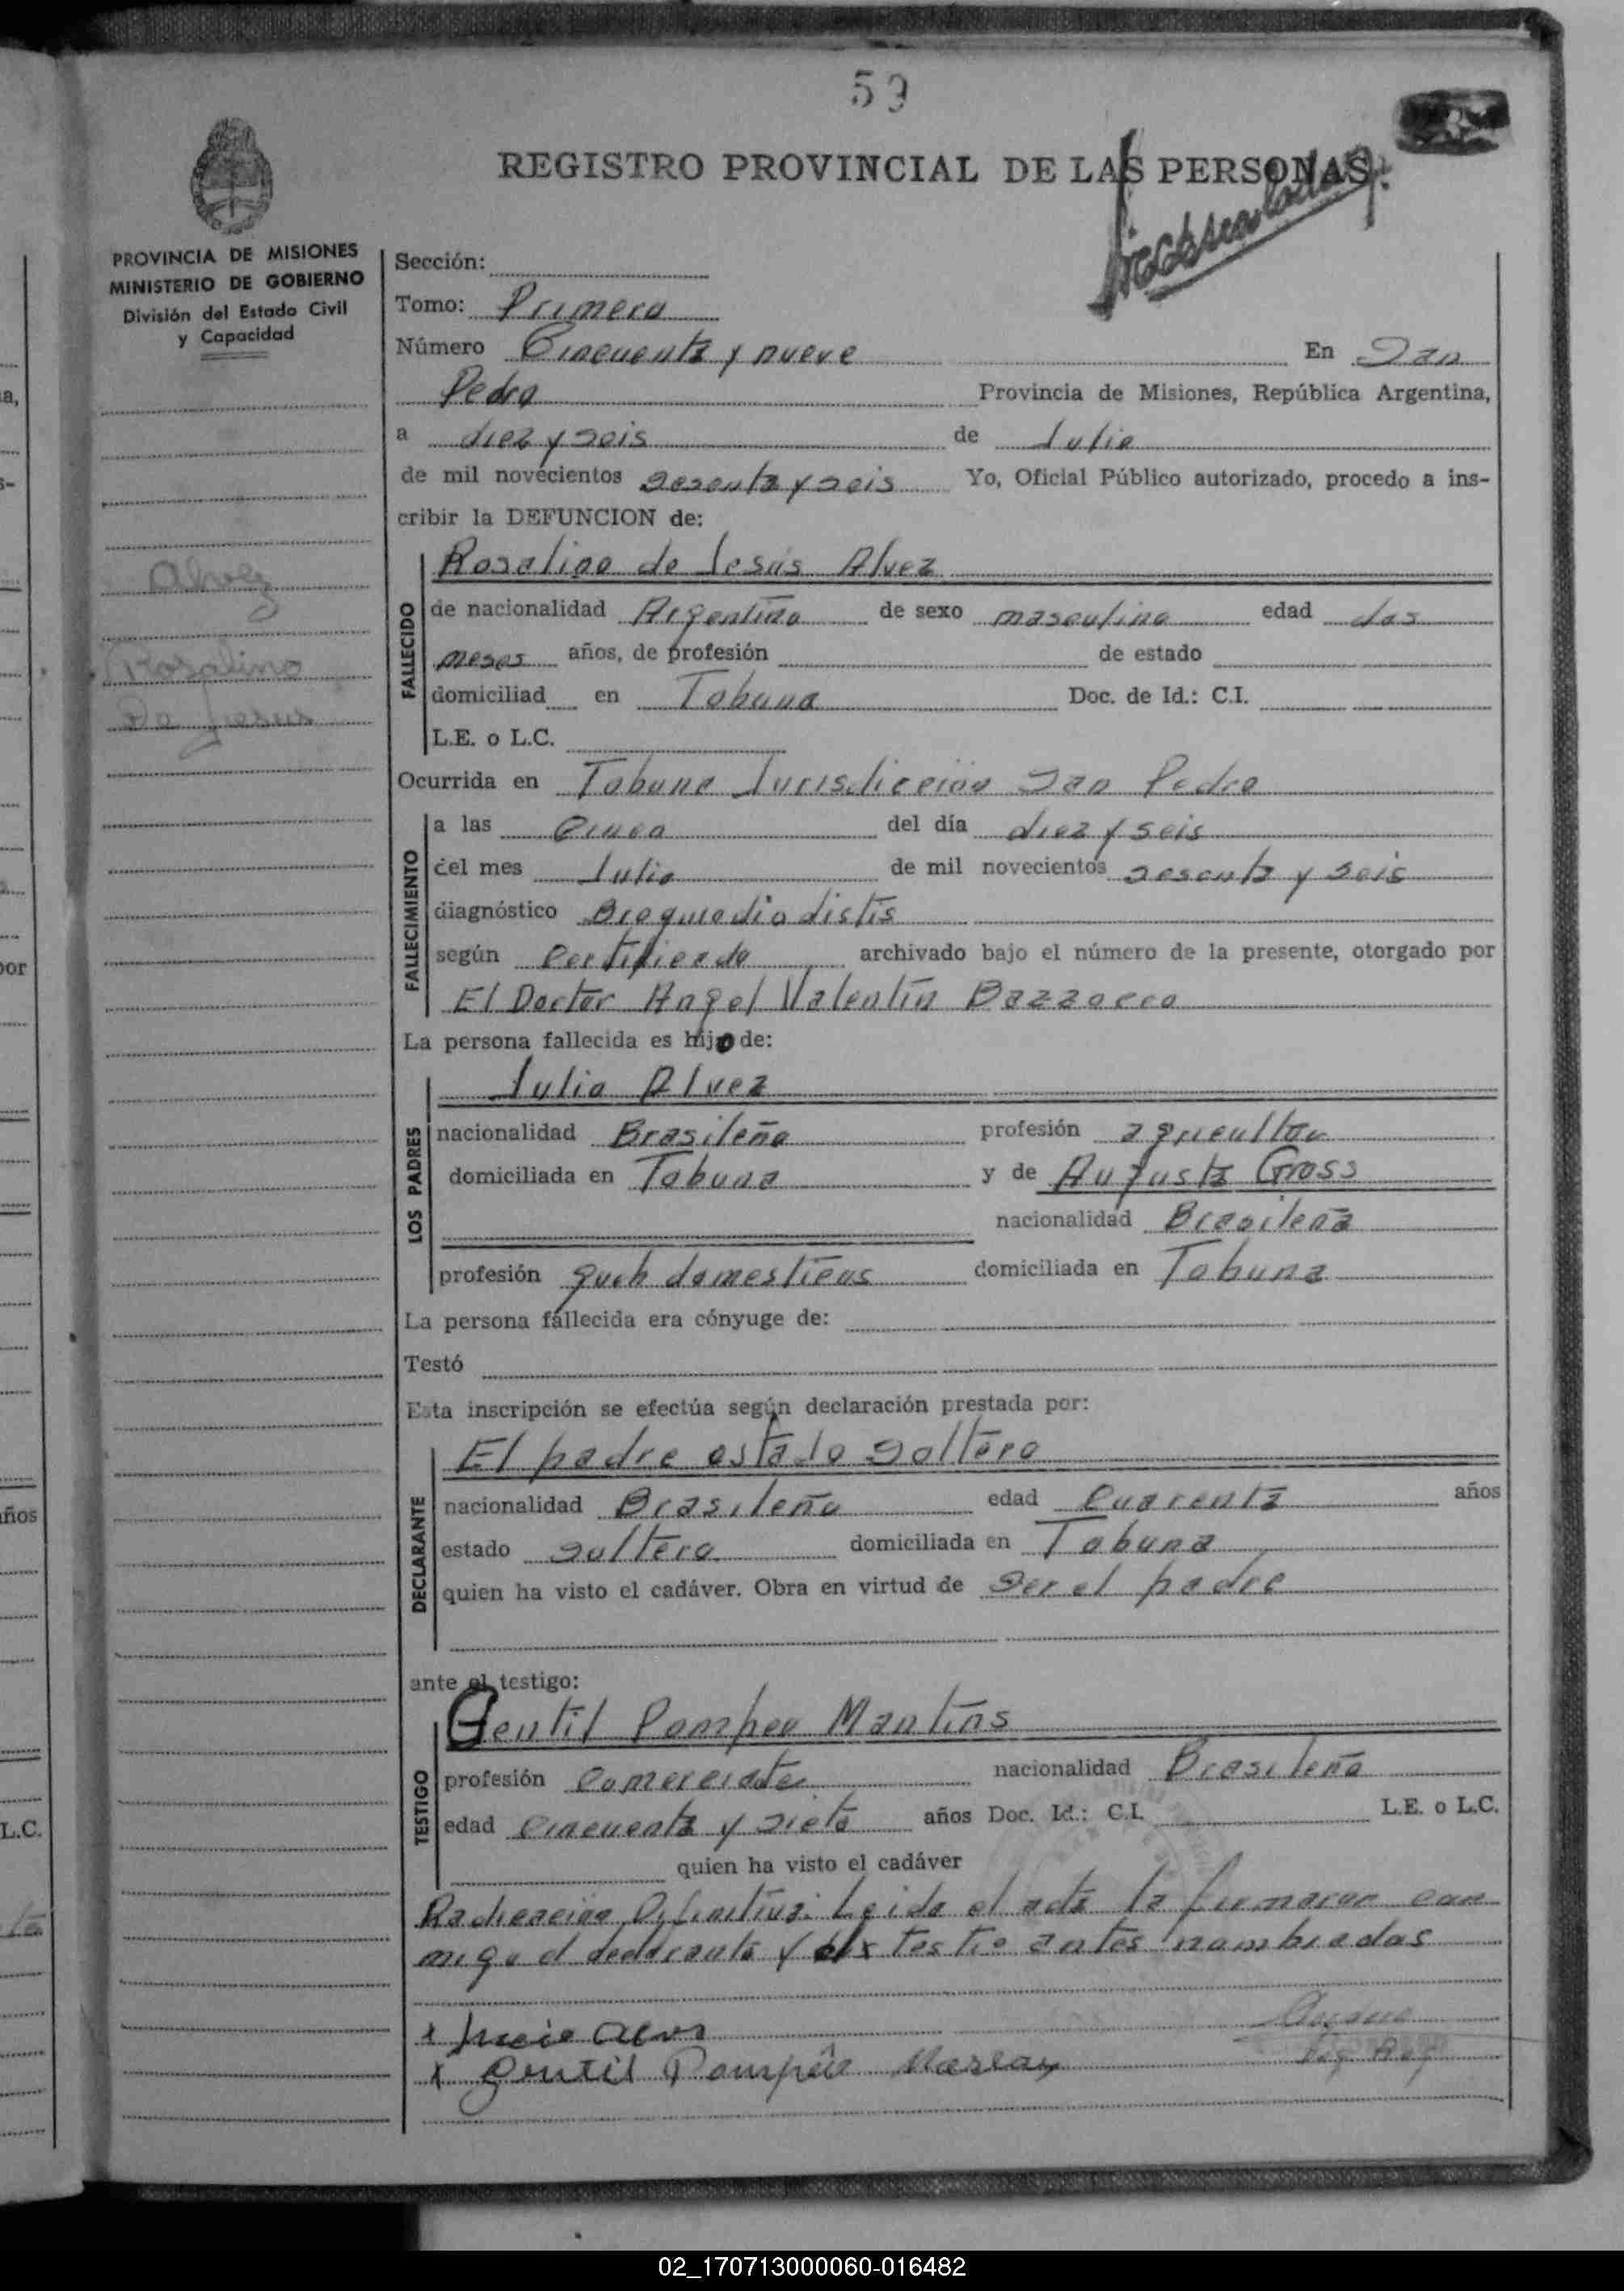 59
REGISTRO PROVINCIAL DE LAS PERSONAS.
PROVINCIA DE MISIONES
MINISTERIO DE GOBIERNO
División del Estado Civil
y Capacidad
Sección:
Tomo: Primero
Número Cincuenta y nueve En San
Pedro Provincia de Misiones, República Argentina,
a diez y seis de Julio
de mil novecientos sesenta y seis Yo, Oficial Público autorizado, procedo a ins-
cribir la DEFUNCION de:
Alvez
Rosalino
De Jesus
FALLECIDO
Rosalino de Jesús Alvez
de nacionalidad Argentino de sexo masculino edad dos
meses años, de profesión de estado
domiciliad en Tobuna Doc. de Id.: C.I.
L.E. o L.C.
Ocurrida en Tobuna Jurisdicción San Pedro
FALLECIMIENTO
a las Cinco del día diez y seis
del mes Julio de mil novecientos sesenta y seis
diagnóstico
según Certificado archivado bajo el número de la presente, otorgado por
El Doctor Angel Valentín Bazzocco
La persona fallecida es hijo de:
LOS PADRES
Julio Alvez
nacionalidad Brasileño profesión agricultor
domiciliada en Tobuna y de Augusta Gross
nacionalidad Brasileña
profesión queh domesticos domiciliada en Tobuna
La persona fallecida era cónyuge de:
Testó
Esta inscripción se efectúa según declaración prestada por:
DECLARANTE
El padre estado soltero
nacionalidad Brasileño edad Cuarenta años
estado soltero domiciliada en Tobuna
quien ha visto el cadáver. Obra en virtud de ser el padre
ante el testigo:
TESTIGO
Gentil Pompeo Mantins
profesión Comerciante nacionalidad Brasileño
edad Cincuenta y siete años Doc. Id.: C.I. L.E. o L.C.
quien ha visto el cadáver
Radicación Definitiva: Leida el acta la firmaron con
migo el declarante y testio antes nombrados
x Alves
x Gentil Pompêo
02_170713000060-016482